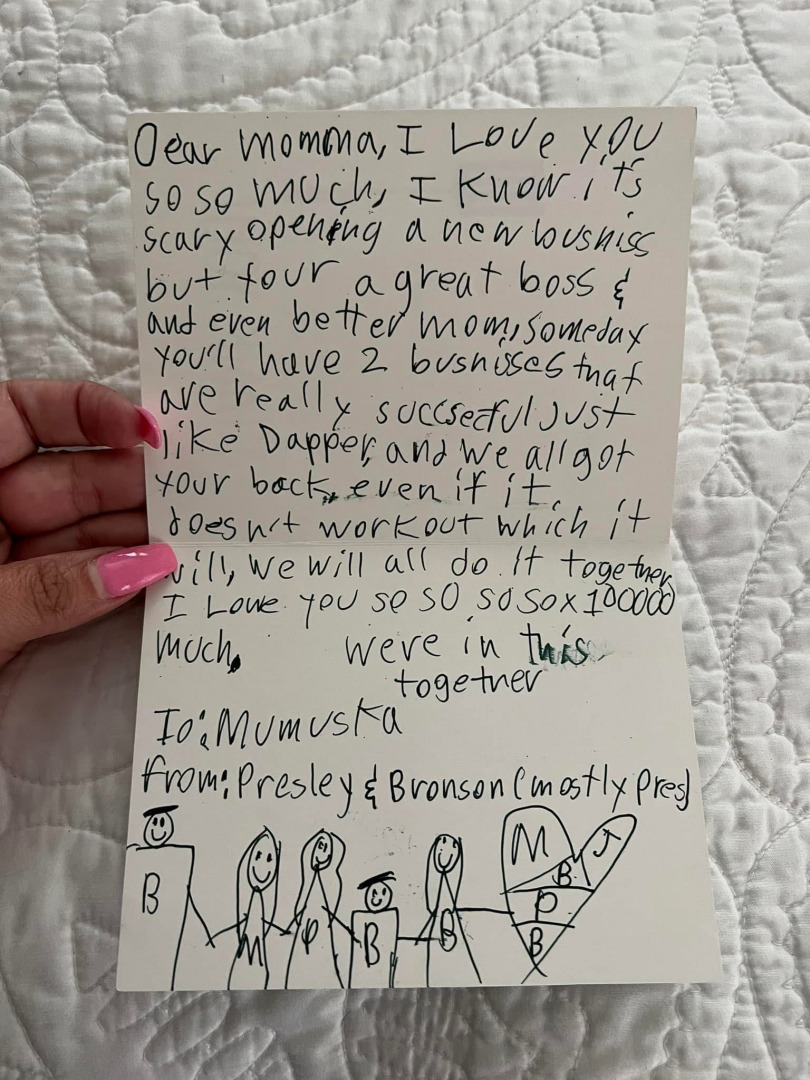 Dear momma, I Love you
so so much, I know it's
scary opening a new busniss
but your a great boss &
and even better mom, someday
you'll have 2 busnisses that
are really succsesful just
like Dapper, and we all got
your back, even if it
doesn't workout which it
will, we will all do it together
I Love you so so so so x 100000
much. were in this
together
To: Mumuska
from: Presley & Bronson (mostly pres)
B M P B B M B A P B